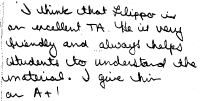 I think that Filippo is
an excellent TA. He is very
friendly and always helps
students to understand the
material. I give him
an A+!